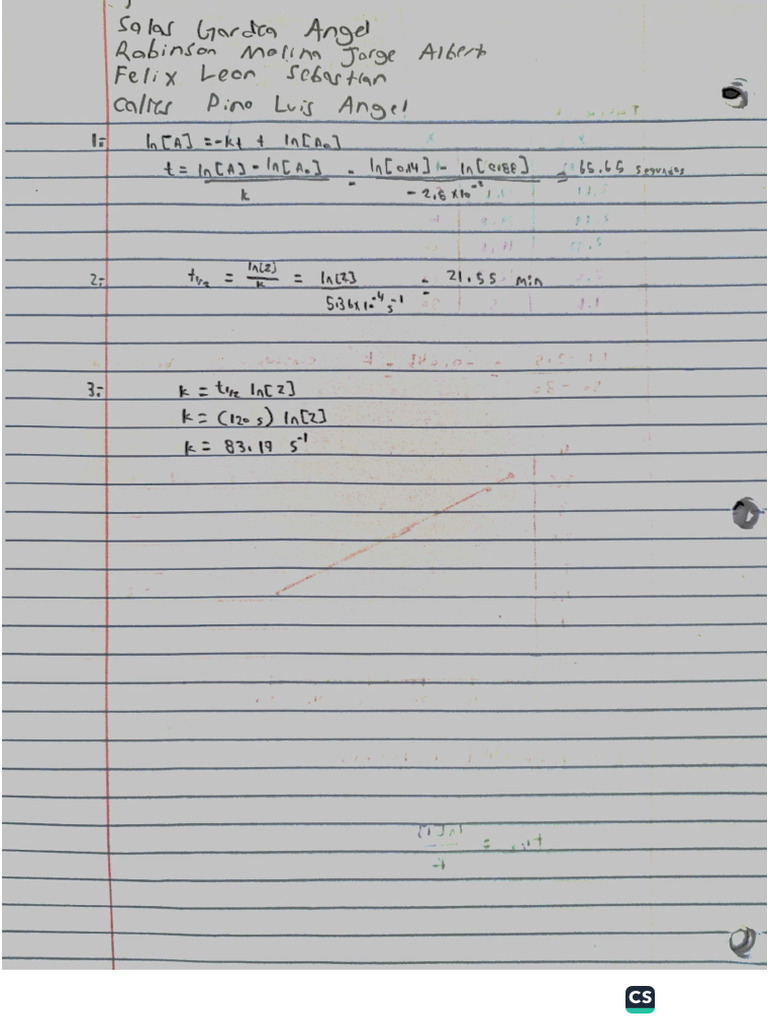 Salas Gardea Angel
Robinson Molina Jorge Albert
Felix Leon Sebastian
Calles Pino Luis Angel
1:- ln[A] = -kt + ln[A₀]
t = ln[A] - ln[A₀] / k = ln[0.14] - ln[0.88] / -2.8 x 10⁻² = 65.65 segundos
2:- t₁/₂ = ln[2] / k = ln[2] / 5.36x10⁻⁴ s⁻¹ = 21.55 min
3:- k = t₁/₂ ln[2]
k = (120 s) ln[2]
k = 83.17 s⁻¹
CS